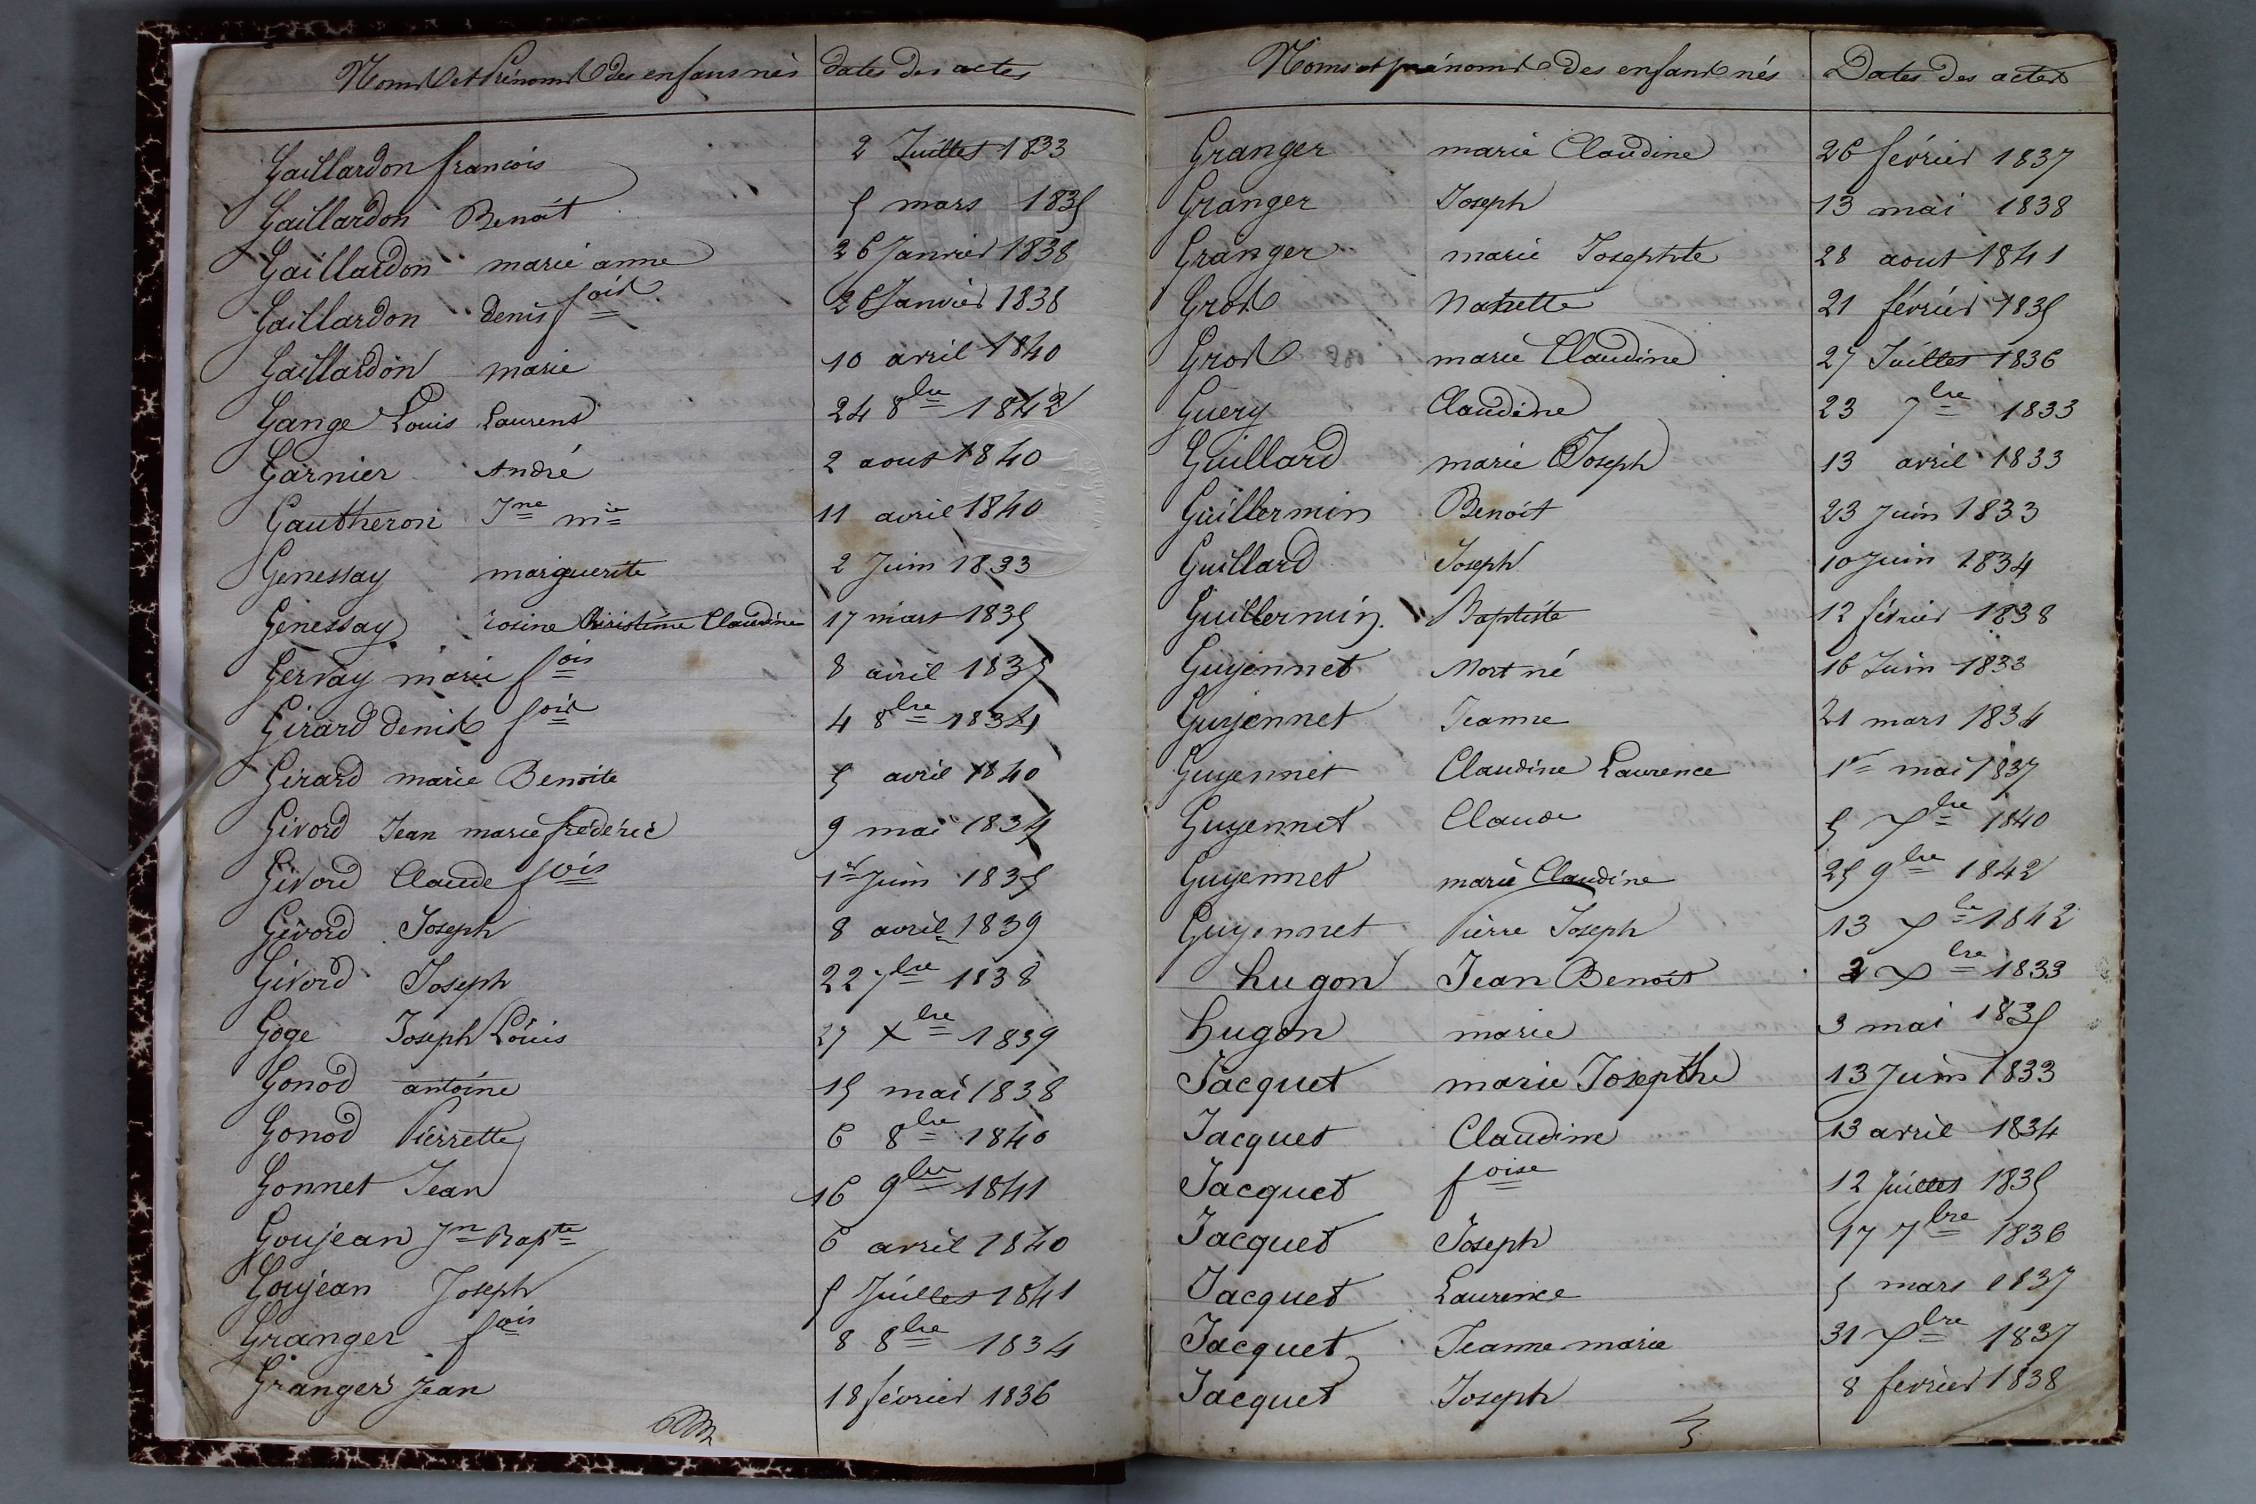 Noms et Prénoms des enfans nés dates des actes
Gaillardon francois 2 Juillet 1833
Gaillardon Benoit 5 mars 1835
Gaillardon marie anne 26 Janvier 1838
Gaillardon denis fois 26 Janvier 1838
Gaillardon marie 10 avril 1840
Gange Louis Laurent 24 8bre 1842
Garnier André 2 aout 1840
Gautheron Jne mie 11 avril 1840
Genessay marguerite 2 Juin 1833
Genessay rosine Christine Claudine 17 mars 1835
Gervay marie fois 8 avril 1835
Girard denis fois 4 8bre 1834
Girard marie Benoite 5 avril 1840
Givord Jean marie frédéric 9 mai 1834
Givord Claude fois 1er Juin 1835
Givord Joseph 8 avril 1839
Givord Joseph 22 7bre 1838
Goge Joseph Louis 27 Xbre 1839
Gonod antoine 15 mai 1838
Gonod Pierrette 6 8bre 1840
Gonnet Jean 16 9bre 1841
Goujean Jn Bapte 6 avril 1840
Goujean Joseph 5 Juillet 1841
Granger fois 8 8bre 1834
Granger Jean 18 février 1836
Noms et prénoms des enfans nés Dates des actes
Granger marie Claudine 26 février 1837
Granger Joseph 13 mai 1838
Granger marie Josephte 28 aout 1841
Gros Nanette 21 février 1835
Gros marie Claudine 27 Juillet 1836
Guery Claudine 23 7bre 1833
Guillard marie Joseph 13 avril 1833
Guillermin Benoit 23 Juin 1833
Guillard Joseph 10 Juin 1834
Guillermin Baptiste 12 février 1838
Guyennet Mort né 16 Juin 1833
Guyennet Jeanne 21 mars 1834
Guyennet Claudine Laurence 1er mai 1837
Guyennet Claude 5 Xbre 1840
Guyennet marie Claudine 25 9bre 1842
Guyennet Pierre Joseph 13 Xbre 1842
hugon Jean Benoit 2 Xbre 1833
hugon marie 3 mai 1835
Jacquet marie Josepthe 13 Juin 1833
Jacquet Claudine 13 avril 1834
Jacquet foise 12 Juillet 1835
Jacquet Joseph 17 7bre 1836
Jacquet Laurence 5 mars 1837
Jacquet Jeanne marie 31 Xbre 1837
Jacquet Joseph 8 février 1838